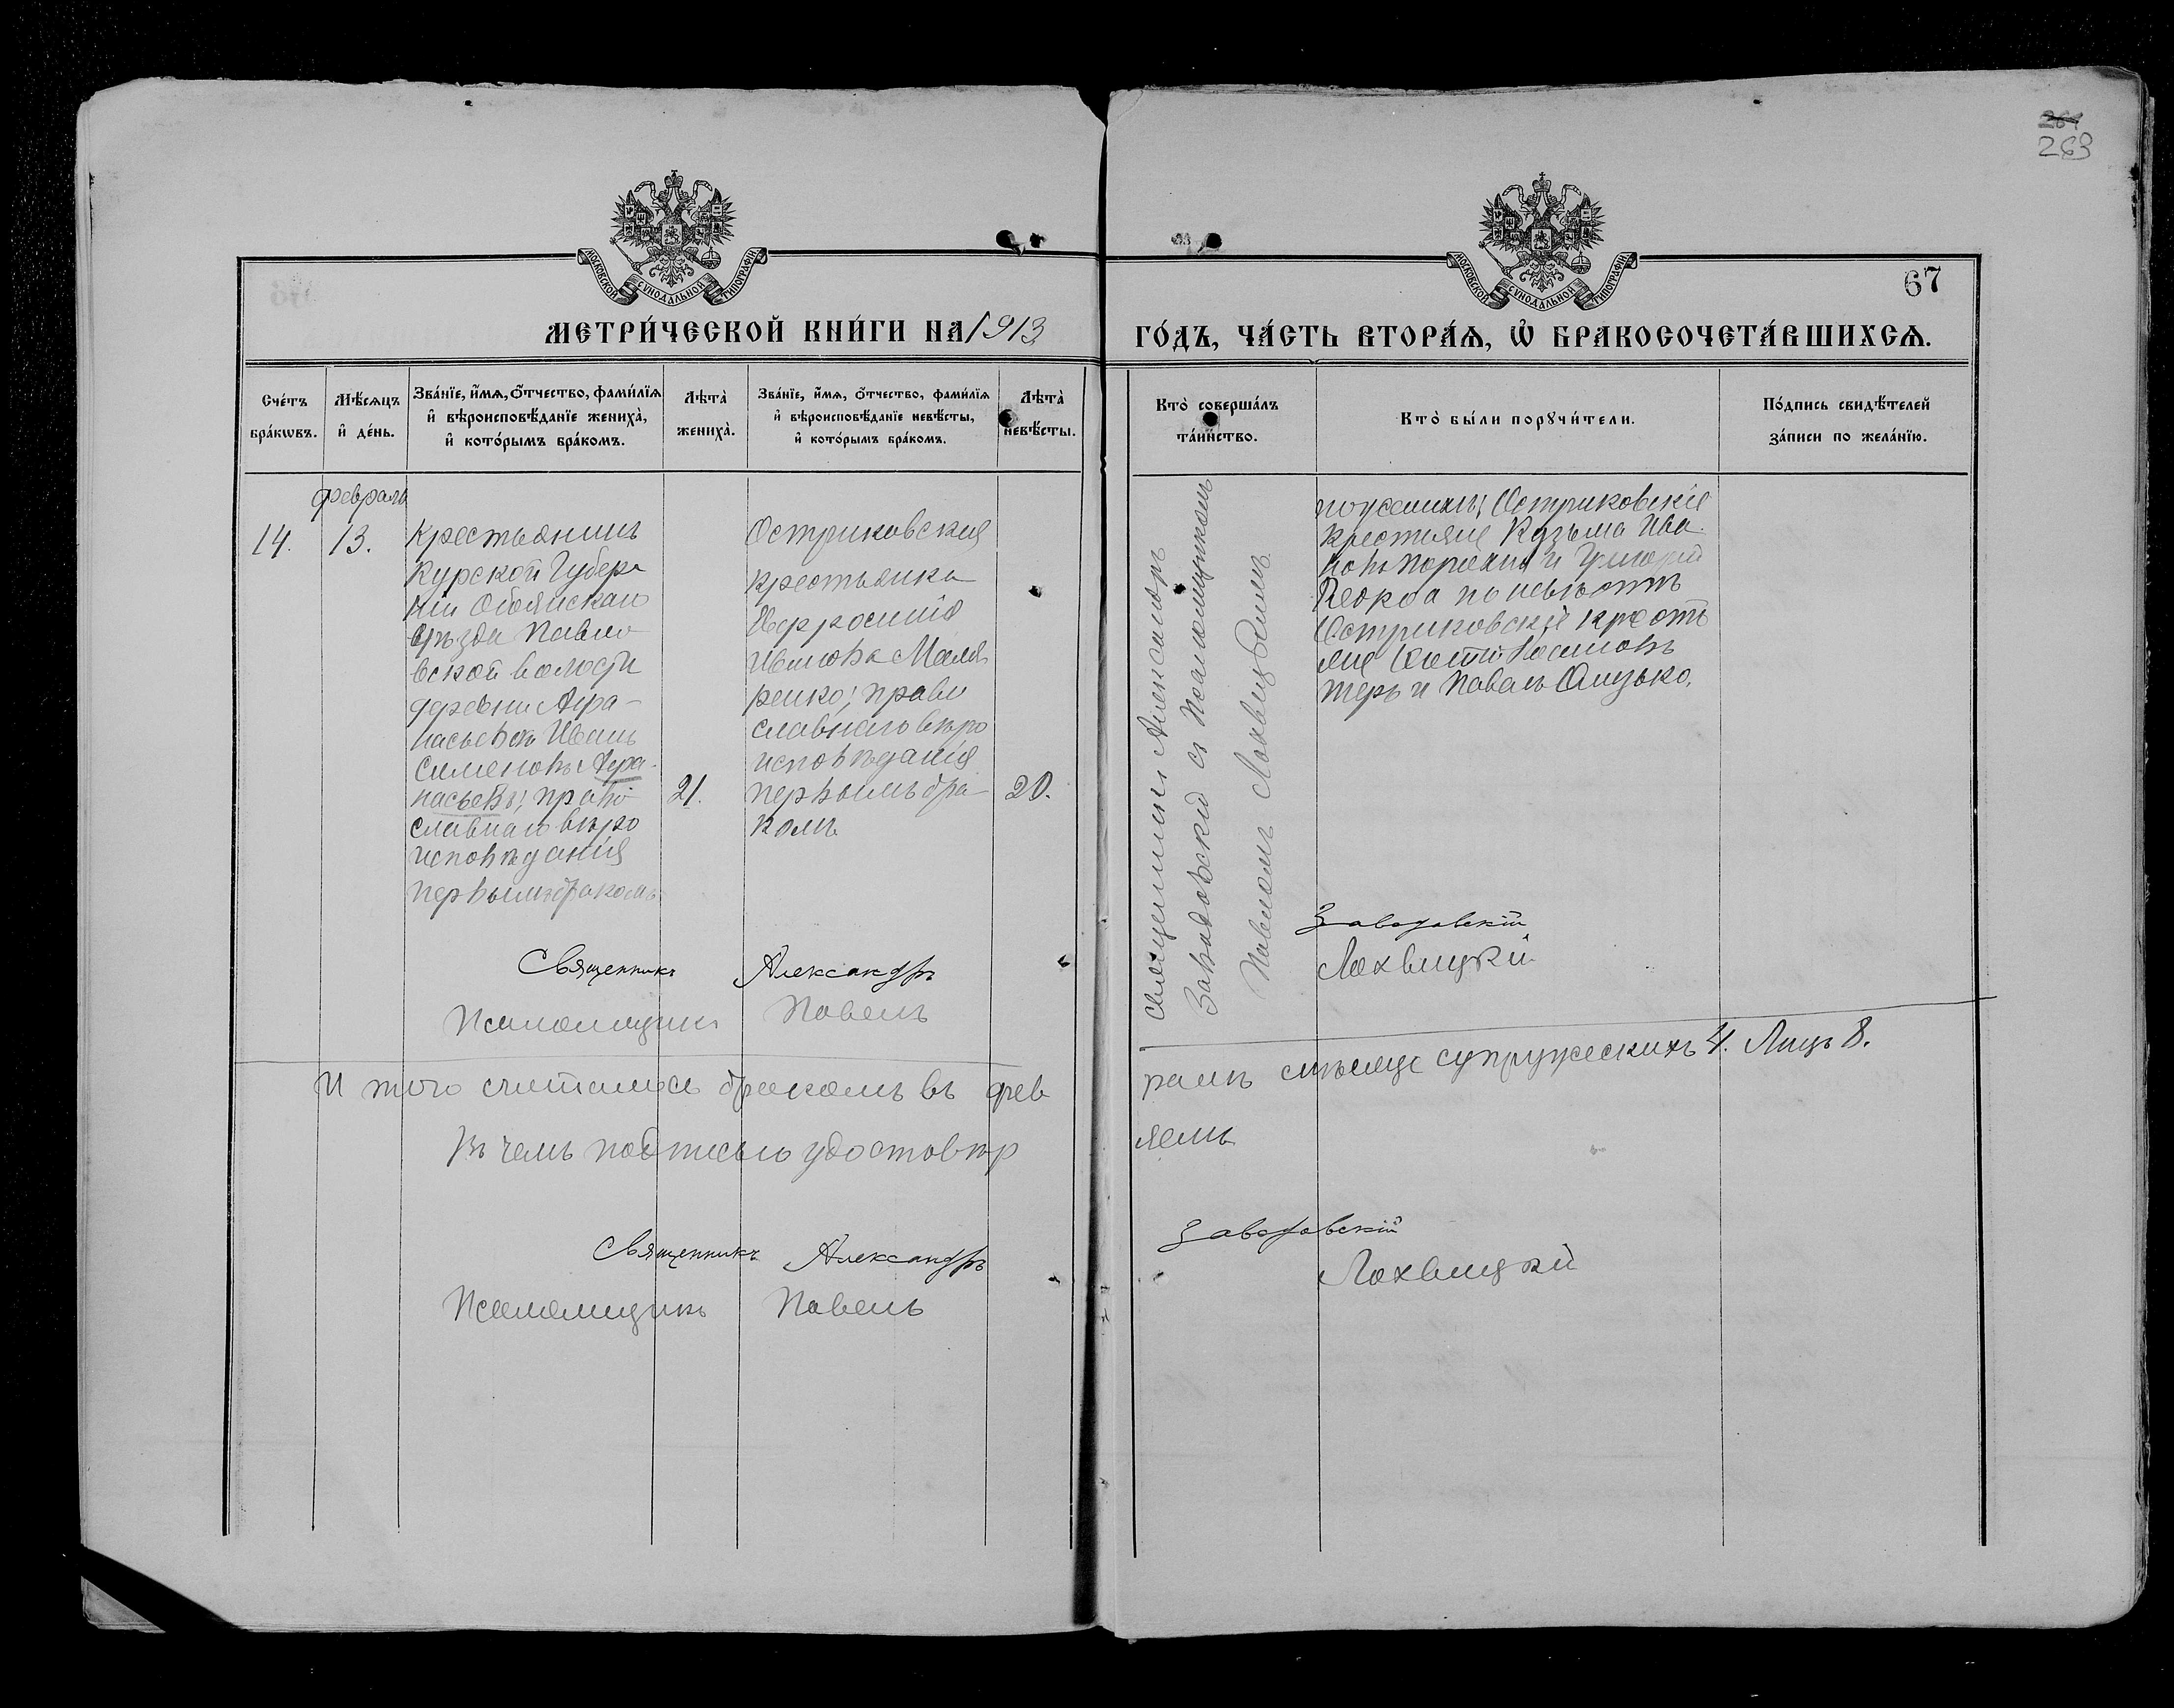 264
263
МОСКОВСКОЙ СѴНОДАЛЬНОЙ ТИПОГРАФІИ
МОСКОВСКОЙ СѴНОДАЛЬНОЙ ТИПОГРАФІИ
67
МЕТРИ́ЧЕСКОЙ КНИ́ГИ НА 1913
ГО́ДЪ, ЧА́СТЬ ВТОРА́Я, Ѡ҆ БРАКОСОЧЕТА́ВШИХСЯ.
Сче́тъ
бра́кѡвъ.
Мѣ́сяцъ
и҆ де́нь.
Зва́нїе, и҆́мя, ѻ҆́тчество, фами́лїя
и҆ вѣроисповѣ́данїе жениха̀,
и҆ кото́рымъ бра́комъ.
Лѣта̀
жениха̀.
Зва́нїе, и҆́мя, ѻ҆́тчество, фами́лїя
и҆ вѣроисповѣ́данїе невѣ́сты,
и҆ кото́рымъ бра́комъ.
Лѣта̀
невѣ́сты.
Кто̀ соверша́лъ
та́инство.
Кто̀ бы́ли порꙋчи́тели.
По́дпись свидѣ́телей
за́писи по жела́нїю.
февраль
14.
13.
Крестьянинъ
Курской Губер
ніи Обоянскаго
уѣзда Павло
вской волости
деревни Афа-
насьевой Иванъ
Симеоновъ Афа-
насьевъ; право
славнаго вѣро
исповѣданія
первымъ бракомъ
21.
Остриковская
крестьянка
Евфросинія
Иванова Маля
ренко; право
славнаго вѣро
исповѣданія
первымъ бра-
комъ
20.
Священникъ Александръ
Заводовскій съ Псаломщикомъ
Павломъ Лохвицкимъ
по женихѣ; Остриковскіе
крестьяне Кузьма Ива
новъ и Григорій
по невѣстѣ
Остриковскіе кресть
яне
и Павелъ
Священникъ Александръ Заводовскій
Псаломщикъ Павелъ Лохвицкій
И того считалось бракомъ въ фев
ралѣ мѣсяце супружескихъ 4. Лицъ 8.
Въ чемъ подписью удостовѣр
яемъ
Священникъ Александръ Заводовскій
Псаломщикъ Павелъ Лохвицкій